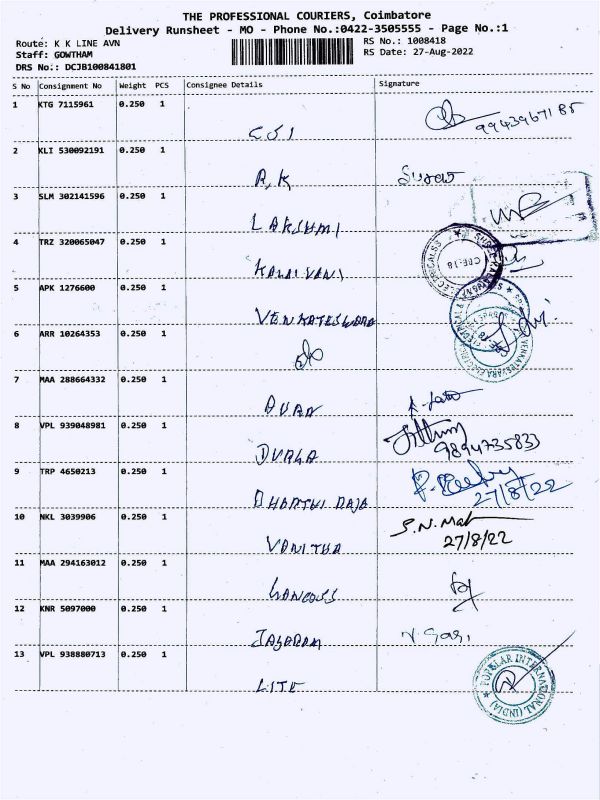 THE PROFESSIONAL COURIERS, Coimbatore
Delivery Runsheet - MO - Phone No.:0422-3505555 - Page No.:1
Route: K K LINE AVN
Staff: GOWTHAM
DRS No.: DCJB100841801
RS No.: 1008418
RS Date: 27-Aug-2022
S No Consignment No Weight PCS Consignee Details Signature
1 KTG 7115961 0.250 1
CSI
2 KLI 530092191 0.250 1
R.K
3 SLM 302141596 0.250 1
LAKSHMI
4 TRZ 320065047 0.250 1
KALAIVANI
5 APK 1276600 0.250 1
VENKATESWARA
6 ARR 10264353 0.250 1
7 MAA 288664332 0.250 1
8 VPL 939048981 0.250 1
9894735833
DURGA
9 TRP 4650213 0.250 1
27/8/22
BHARTHI RAJA
10 NKL 3039906 0.250 1
S.N.Mah
27/8/22
VANITHA
11 MAA 294163012 0.250 1
12 KNR 5097000 0.250 1
JAYARAM
13 VPL 938880713 0.250 1
LITE
POPULAR INTERNATIONAL (INDIA)